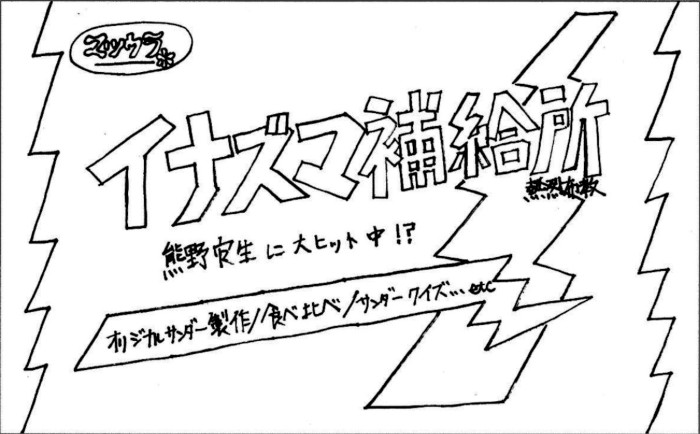 マツウラ
イナズマ補給所
熊野寮生に大ヒット中!?
オリジナルサンダー製作/食べ比べ/サンダークイズ...etc